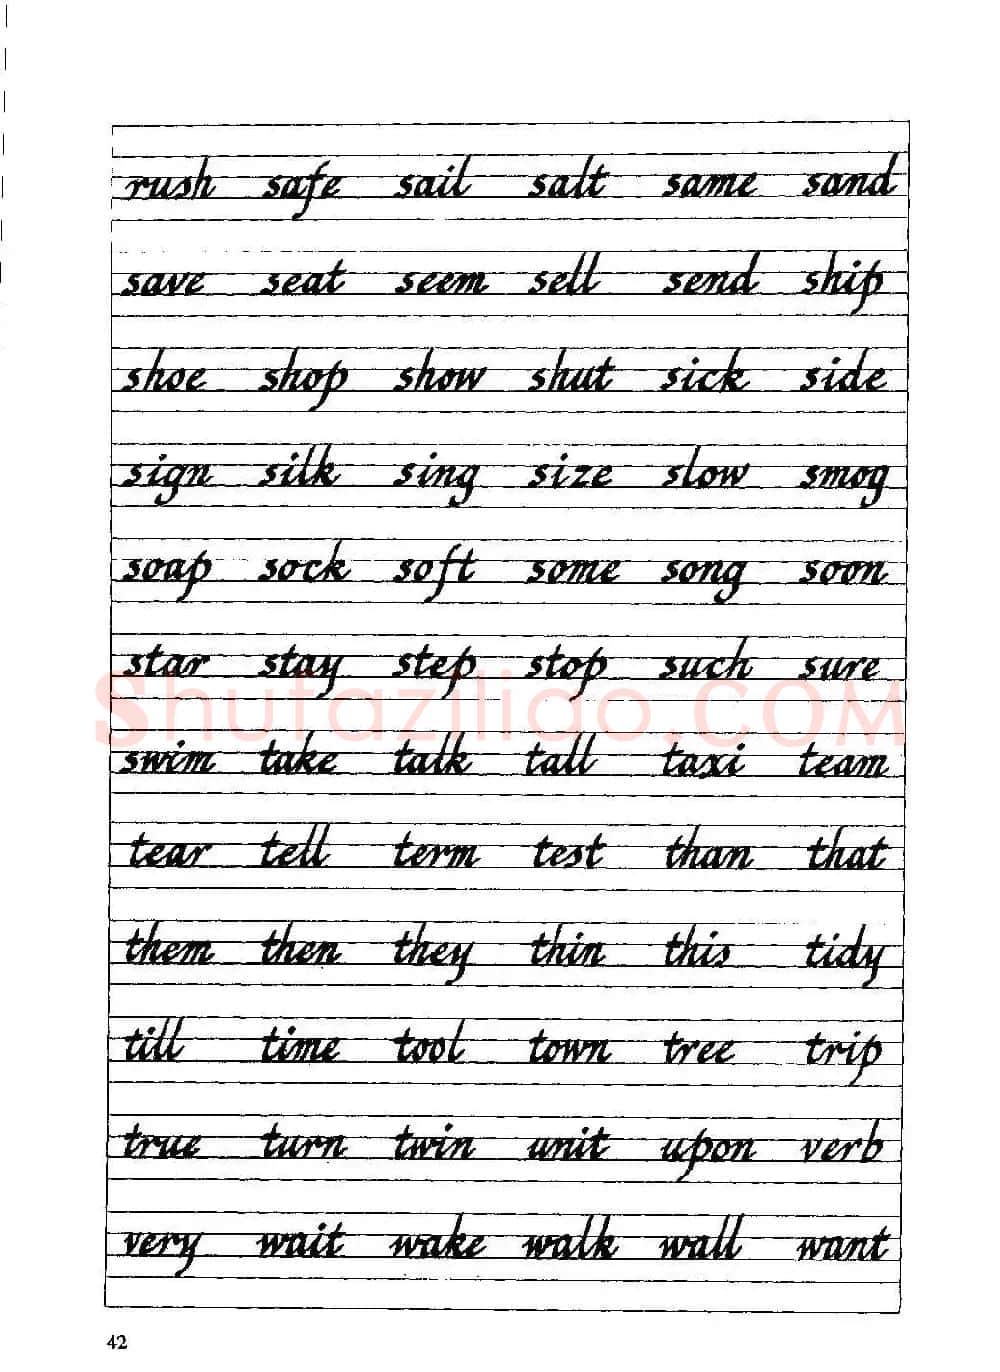 rush safe sail salt same sand
save seat seem sell send ship
shoe shop show shut sick side
sign silk sing size slow smog
soap sock soft some song soon
star stay step stop such sure
Shufaziliao.COM
swim take talk tall taxi team
tear tell term test than that
them then they thin this tidy
till time tool town tree trip
true turn twin unit upon verb
very wait wake walk wall want
42